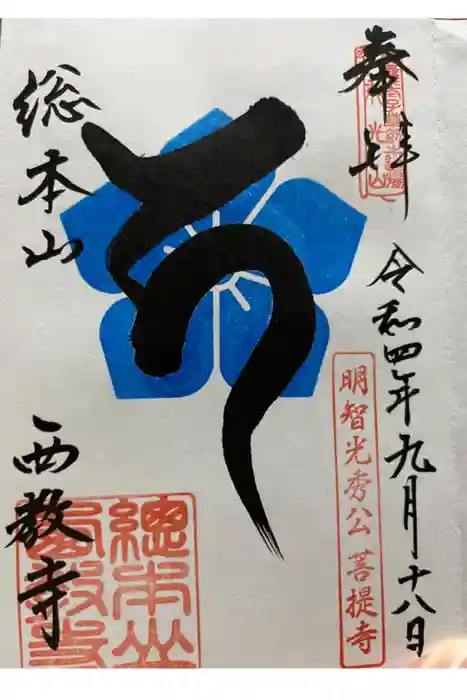 奉拝
令和四年九月十八日
明智光秀公 菩提寺
総本山
西教寺